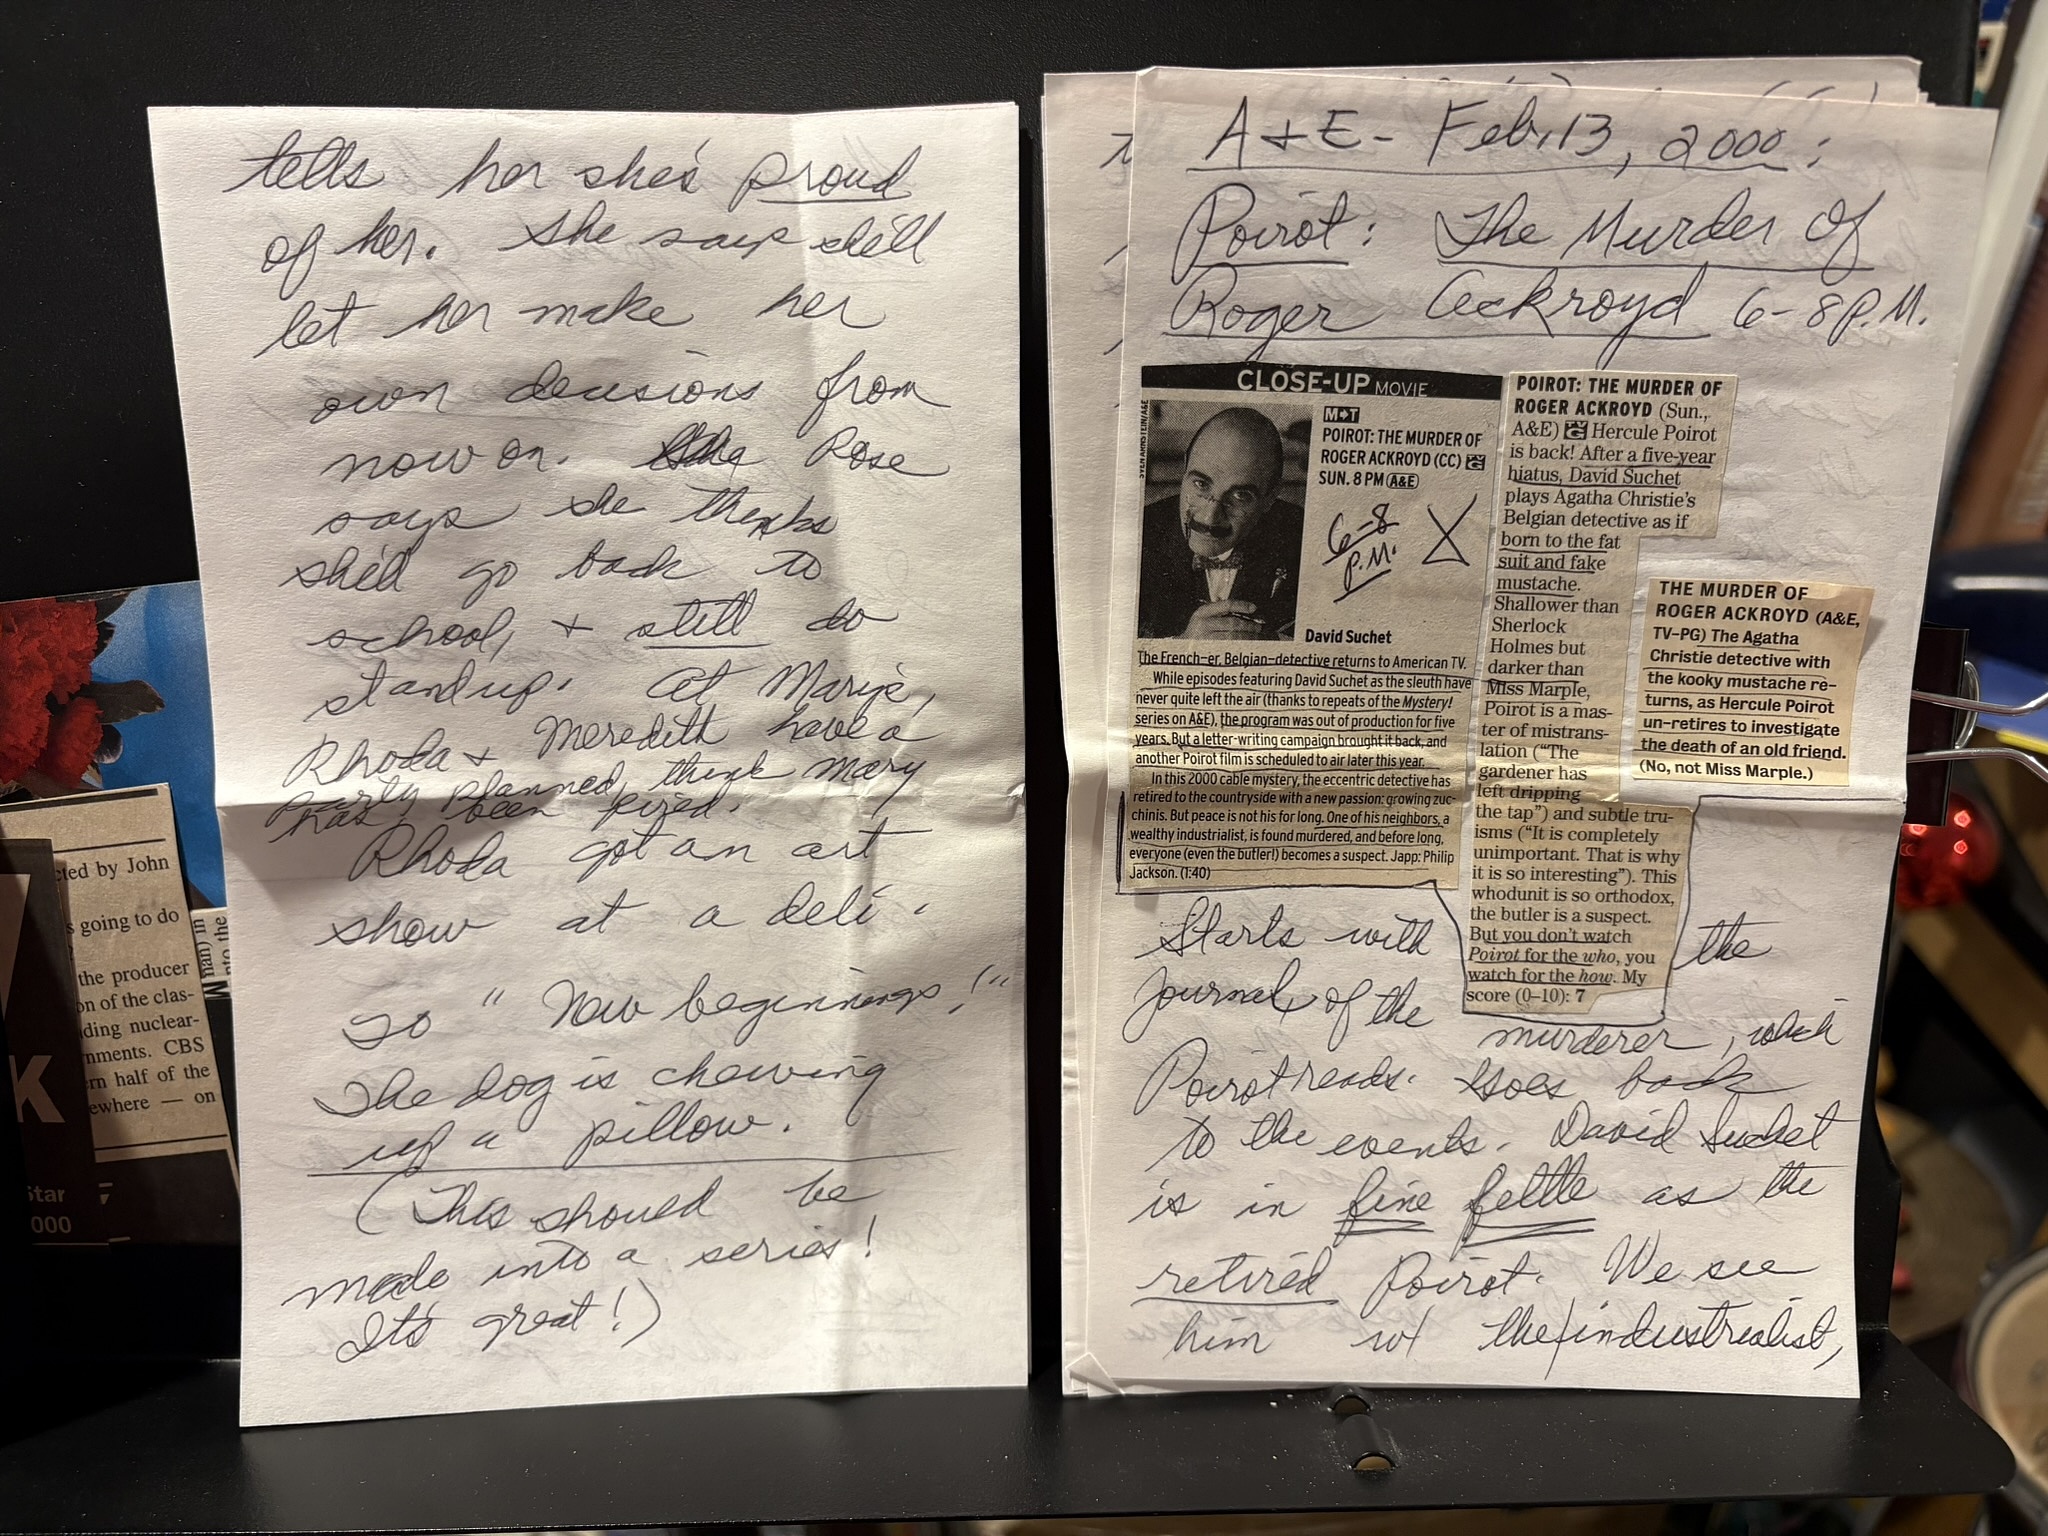 tells her she's proud
of her. She says she'll
let her make her
own decisions from
now on. Rose
says she thinks
she'll go back to
school, + still do
standup. At Mary's,
Rhoda + Meredith have a
party planned, think Mary
has been fired.
Rhoda got an art
show at a deli.
To "New beginnings!"
The dog is chewing
up a pillow.
(This should be
made into a series!
It's great!)
A+E - Feb. 13, 2000:
Poirot: The Murder of
Roger Ackroyd 6-8 P.M.
CLOSE-UP MOVIE
M T
POIROT: THE MURDER OF
ROGER ACKROYD (CC) TV G
SUN. 8 PM (A&E)
6-8
P.M.
David Suchet
The French–er, Belgian–detective returns to American TV.
While episodes featuring David Suchet as the sleuth have
never quite left the air (thanks to repeats of the Mystery!
series on A&E), the program was out of production for five
years. But a letter-writing campaign brought it back, and
another Poirot film is scheduled to air later this year.
In this 2000 cable mystery, the eccentric detective has
retired to the countryside with a new passion: growing zuc-
chinis. But peace is not his for long. One of his neighbors, a
wealthy industrialist, is found murdered, and before long,
everyone (even the butler!) becomes a suspect. Japp: Philip
Jackson. (1:40)
POIROT: THE MURDER OF
ROGER ACKROYD (Sun.,
A&E) TV G Hercule Poirot
is back! After a five-year
hiatus, David Suchet
plays Agatha Christie's
Belgian detective as if
born to the fat
suit and fake
mustache.
Shallower than
Sherlock
Holmes but
darker than
Miss Marple,
Poirot is a mas-
ter of mistrans-
lation ("The
gardener has
left dripping
the tap") and subtle tru-
isms ("It is completely
unimportant. That is why
it is so interesting"). This
whodunit is so orthodox,
the butler is a suspect.
But you don't watch
Poirot for the who, you
watch for the how. My
score (0–10): 7
THE MURDER OF
ROGER ACKROYD (A&E,
TV-PG) The Agatha
Christie detective with
the kooky mustache re-
turns, as Hercule Poirot
un-retires to investigate
the death of an old friend.
(No, not Miss Marple.)
Starts with the
Journal, of the murderer, which
Poirot reads. Goes back
to the events. David Suchet
is in fine fettle as the
retired Poirot. We see
him w/ the industrialist,
cted by John
s going to do
the producer
on of the clas-
ding nuclear-
nments. CBS
ern half of the
ewhere — on
Man) in
nto the
K
Star
000